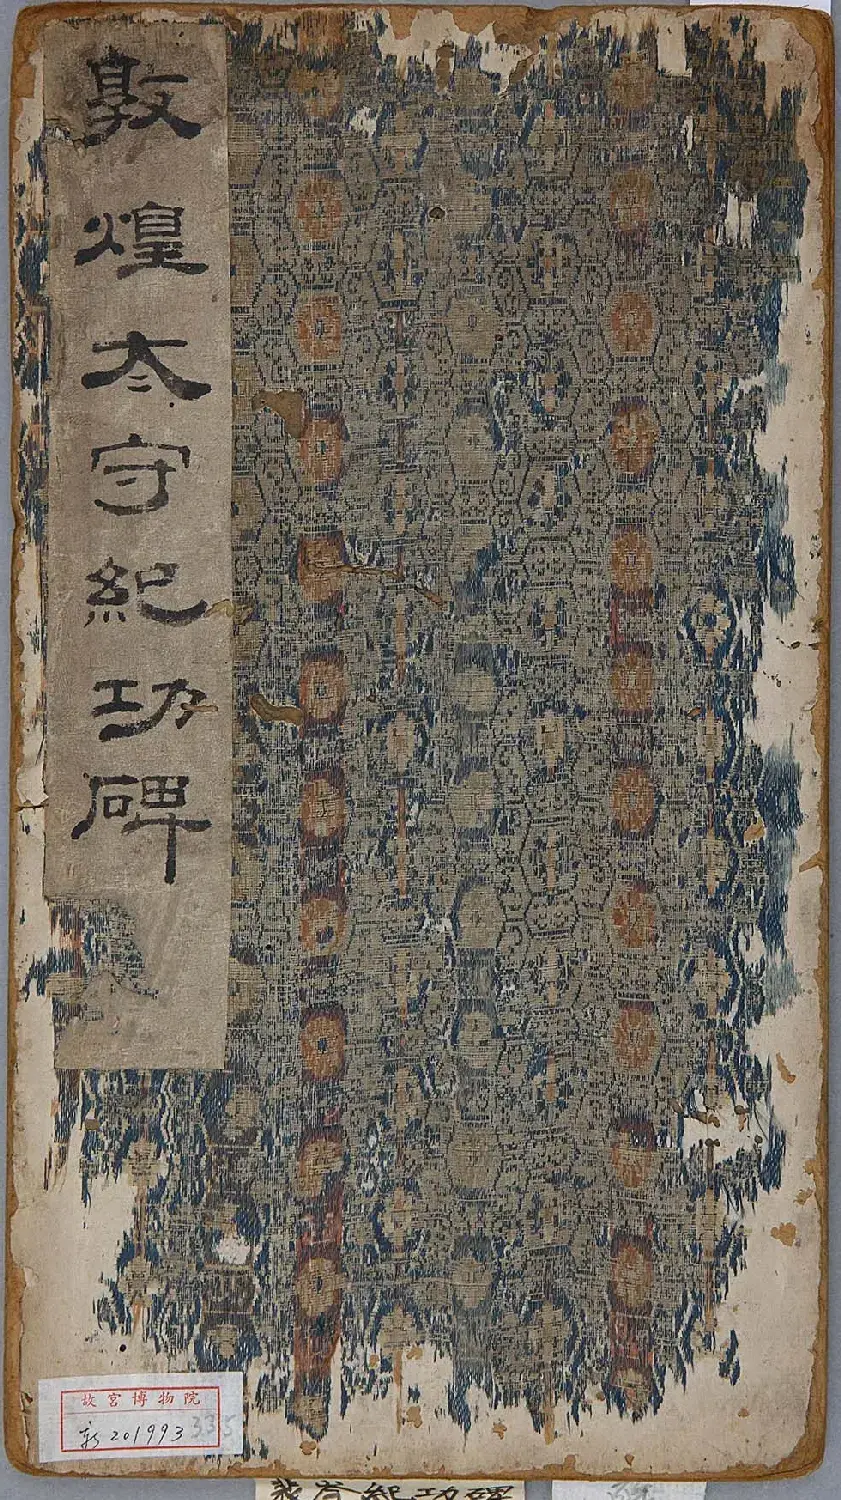 敦煌太守紀功碑
故宮博物院
新201993 335
紀功碑